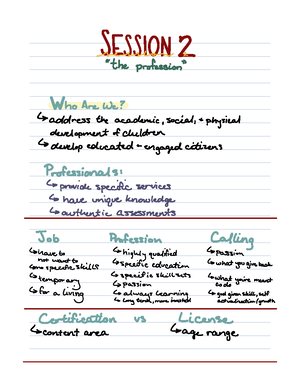 SESSION 2
"the profession"
Who Are We?
↳ address the academic, social, + physical
development of children
↳ develop educated + engaged citizens
Professionals:
↳ provide specific services
↳ have unique knowledge
↳ authentic assessments
Job
↳ have to
not want to
↳ no specific skills
↳ temporary
↳ for a living
Profession
↳ highly qualified
↳ specific education
↳ specific skill sets
↳ passion
↳ always learning
↳ long term, more invested
Calling
↳ passion
↳ what you give back
↳ what you're meant
to do
↳ god given skill, self
actualization/growth
Certification vs License
↳ content area
↳ age range